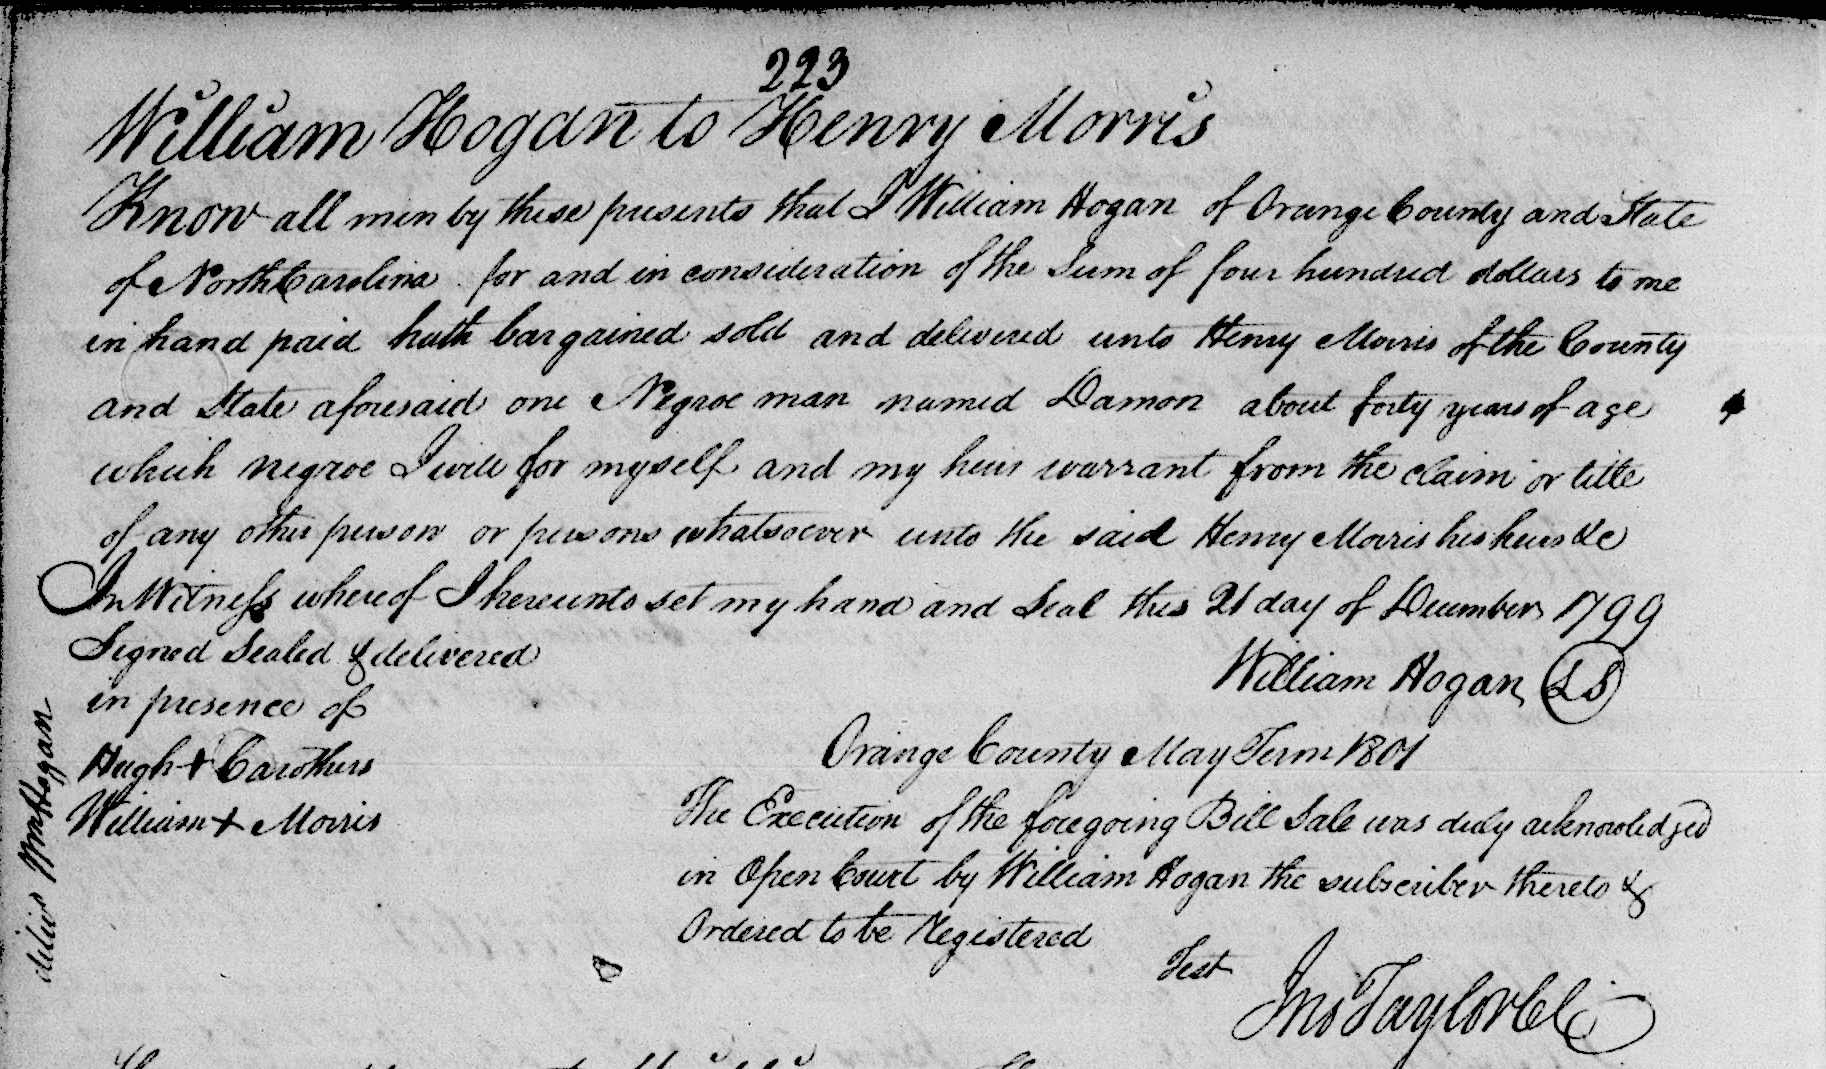 223
William Hogan to Henry Morris
Know all men by these presents that I William Hogan of Orange County and State
of North Carolina for and in consideration of the Sum of four hundred dollars to me
in hand paid hath bargained sold and delivered unto Henry Morris of the County
and State aforesaid one Negroe man named Damon about forty years of age
which negroe I will for myself and my heirs warrant from the claim or title
of any other person or persons whatsoever unto the said Henry Morris his heirs &c
In Witness whereof I hereunto set my hand and Seal this 21 day of December 1799
Signed Sealed & delivered
in presence of
William Hogan LS
Hugh + Carothers
William + Morris
Orange County May Term 1801
The Execution of the foregoing Bill Sale was duly acknowledged
in Open Court by William Hogan the subscriber thereto &
Ordered to be Registered
Test
Jno Taylor Cl
Wm Hogan